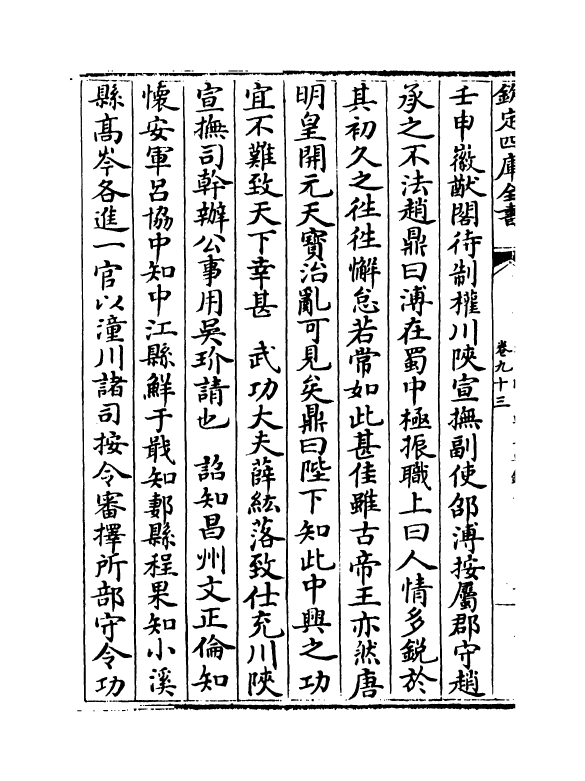 欽定四庫全書
卷九十三
壬申徽猷閣待制權川陝宣撫副使邵溥按屬郡守趙
承之不法趙鼎曰溥在蜀中極振職上曰人情多鋭於
其初久之徃徃懈怠若常如此甚佳雖古帝王亦然唐
明皇開元天寶治亂可見矣鼎曰陛下知此中興之功
宜不難致天下幸甚　武功大夫薛紘落致仕充川陝
宣撫司幹辦公事用吳玠請也　詔知昌州文正倫知
懷安軍呂協中知中江縣鮮于戩知郪縣程果知小溪
縣髙岑各進一官以潼川諸司按令審擇所部守令功